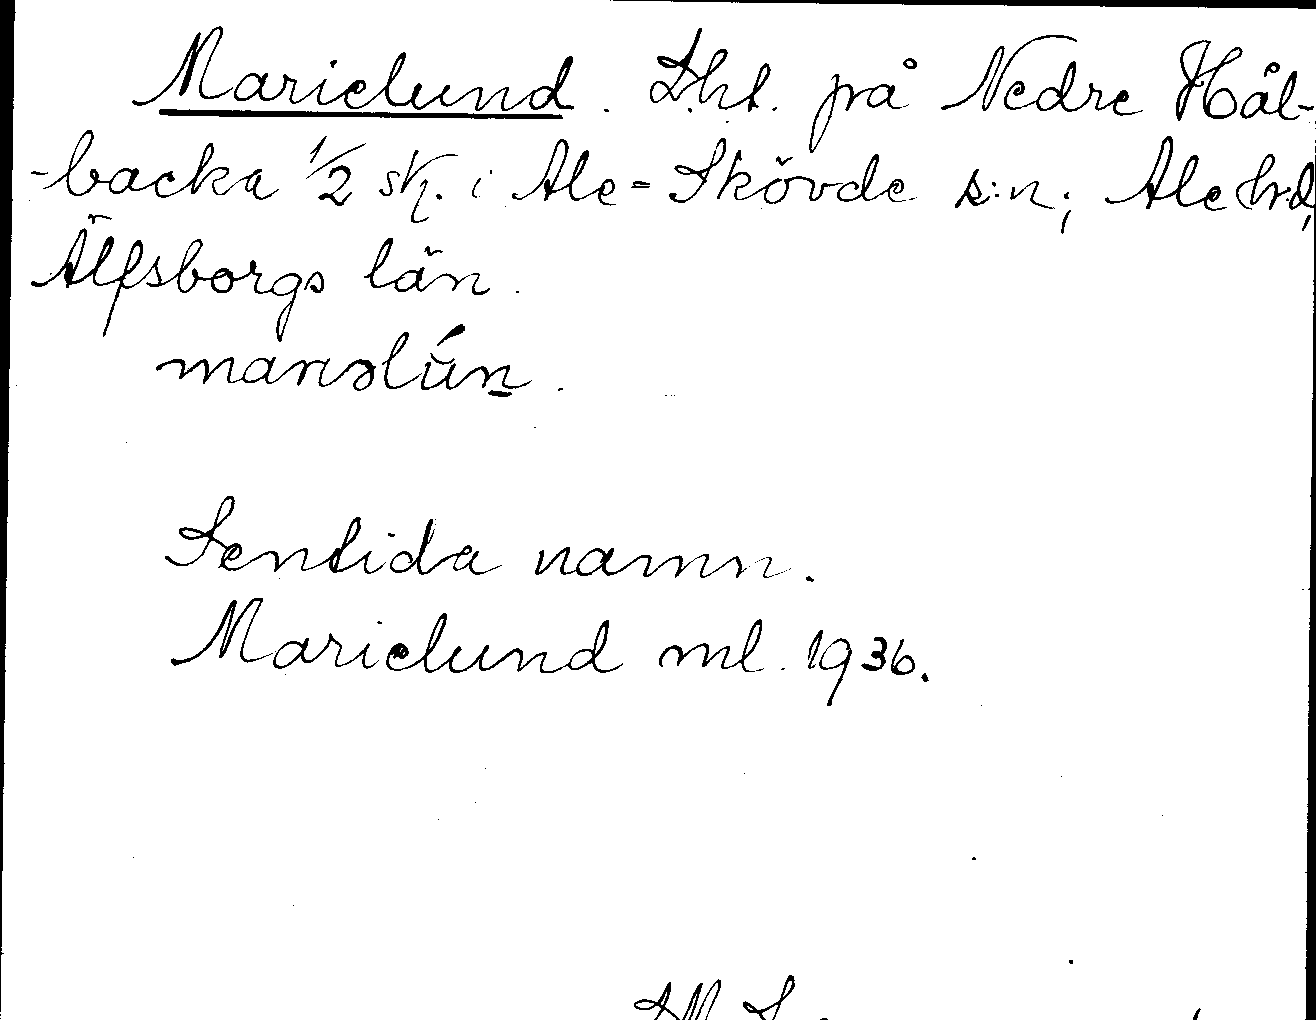 Marielund. Lht. på Nedre Hål-
-backa 1/2 sk. i Ale-Skövde s:n; Ale hd,
Älfsborgs län.
mariəlún.
Sentida namn.
Marielund ml. 1936.